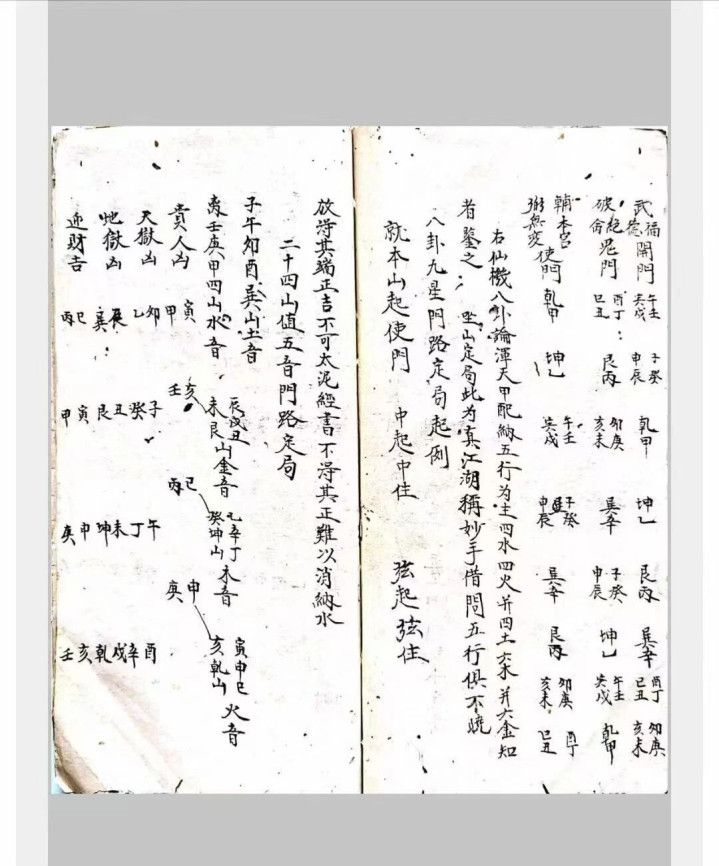 武德福開門 午壬寅戌 子癸申辰 乾甲 坤乙 艮丙 巽辛 酉丁巳丑 卯庚亥未
破命絕鬼門 酉丁巳丑 艮丙 卯庚亥未 巽辛 子癸申辰 坤乙 午壬寅戌 乾甲
輔弼本宮無变使門 乾甲 坤乙 午壬寅戌 子癸申辰 巽辛 艮丙 卯庚亥未 酉丁巳丑
右仙機八卦論渾天甲配納五行为主四水四火并四土六木并六金知
者鑒之 坐山定局此为真江湖稱妙手借問五行俱不曉
八卦九星門路定局起例
就本山起使門 中起中住 弦起弦住
放淂其端正吉不可太泥經書不淂其正難以消納水
二十四山值五音門路定局
子午卯酉巽山土音 辰戌丑未艮山金音 乙辛丁癸坤山木音 寅申巳亥乾山火音
离壬庚甲四山水音
貴人凶 寅甲 亥壬 巳丙 申庚
天獄凶 卯乙 子癸 午丁 酉辛
地獄凶 辰巽 丑艮 未坤 戌乾
迎財吉 巳丙 寅甲 申庚 亥壬